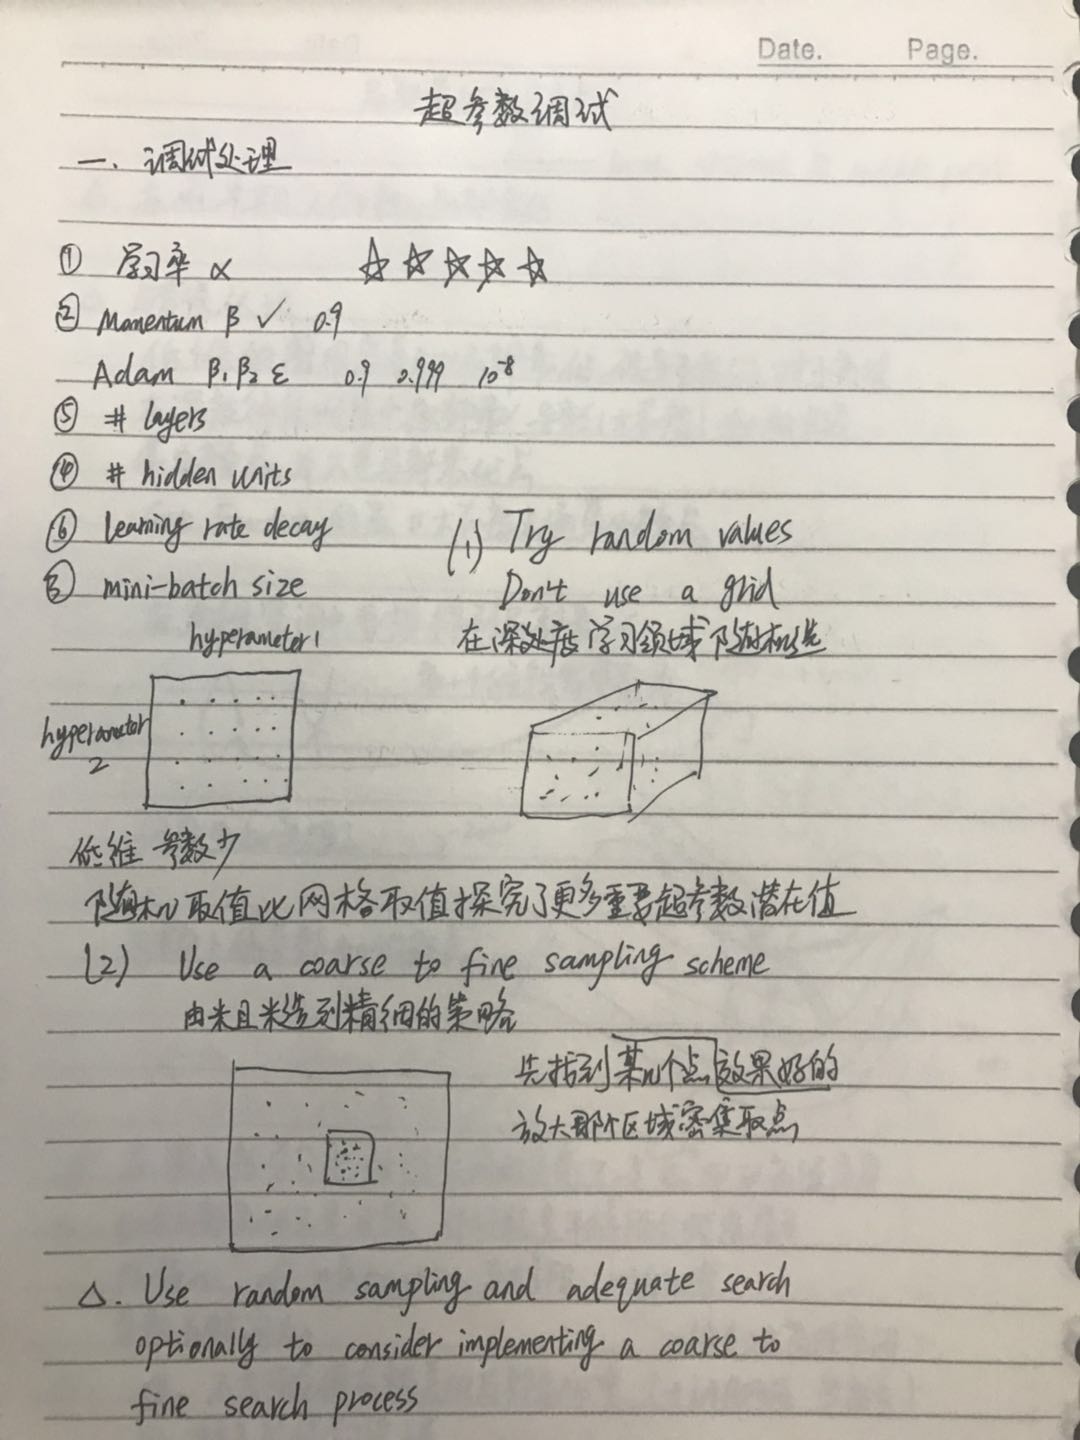 Date. Page.
超参数调试
一. 调试处理
① 学习率 α ☆☆☆☆☆
② Momentum β ✓ 0.9
Adam β₁ β₂ ε 0.9 0.999 10⁻⁸
⑤ # layers
④ # hidden units
⑥ learning rate decay
③ mini-batch size
(1) Try random values
Don't use a grid
在深度学习领域随机选
hyperameter1
hyperameter
2
低维 参数少
随机取值比网格取值探究了更多重要超参数潜在值
(2) Use a coarse to fine sampling scheme
由粗糙到精细的策略
先找到某几个点效果好的
放大那个区域密集取点
△. Use random sampling and adequate search
optionally to consider implementing a coarse to
fine search process